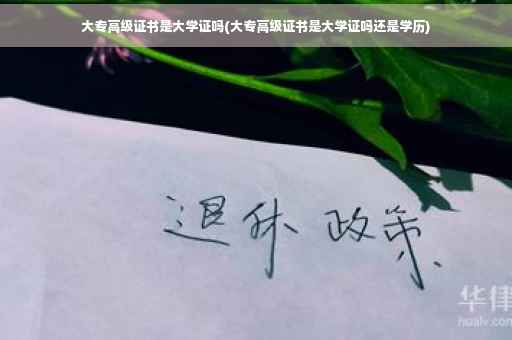 大专高级证书是大学证吗(大专高级证书是大学证吗还是学历)
退休 政策
华律
hualv.com